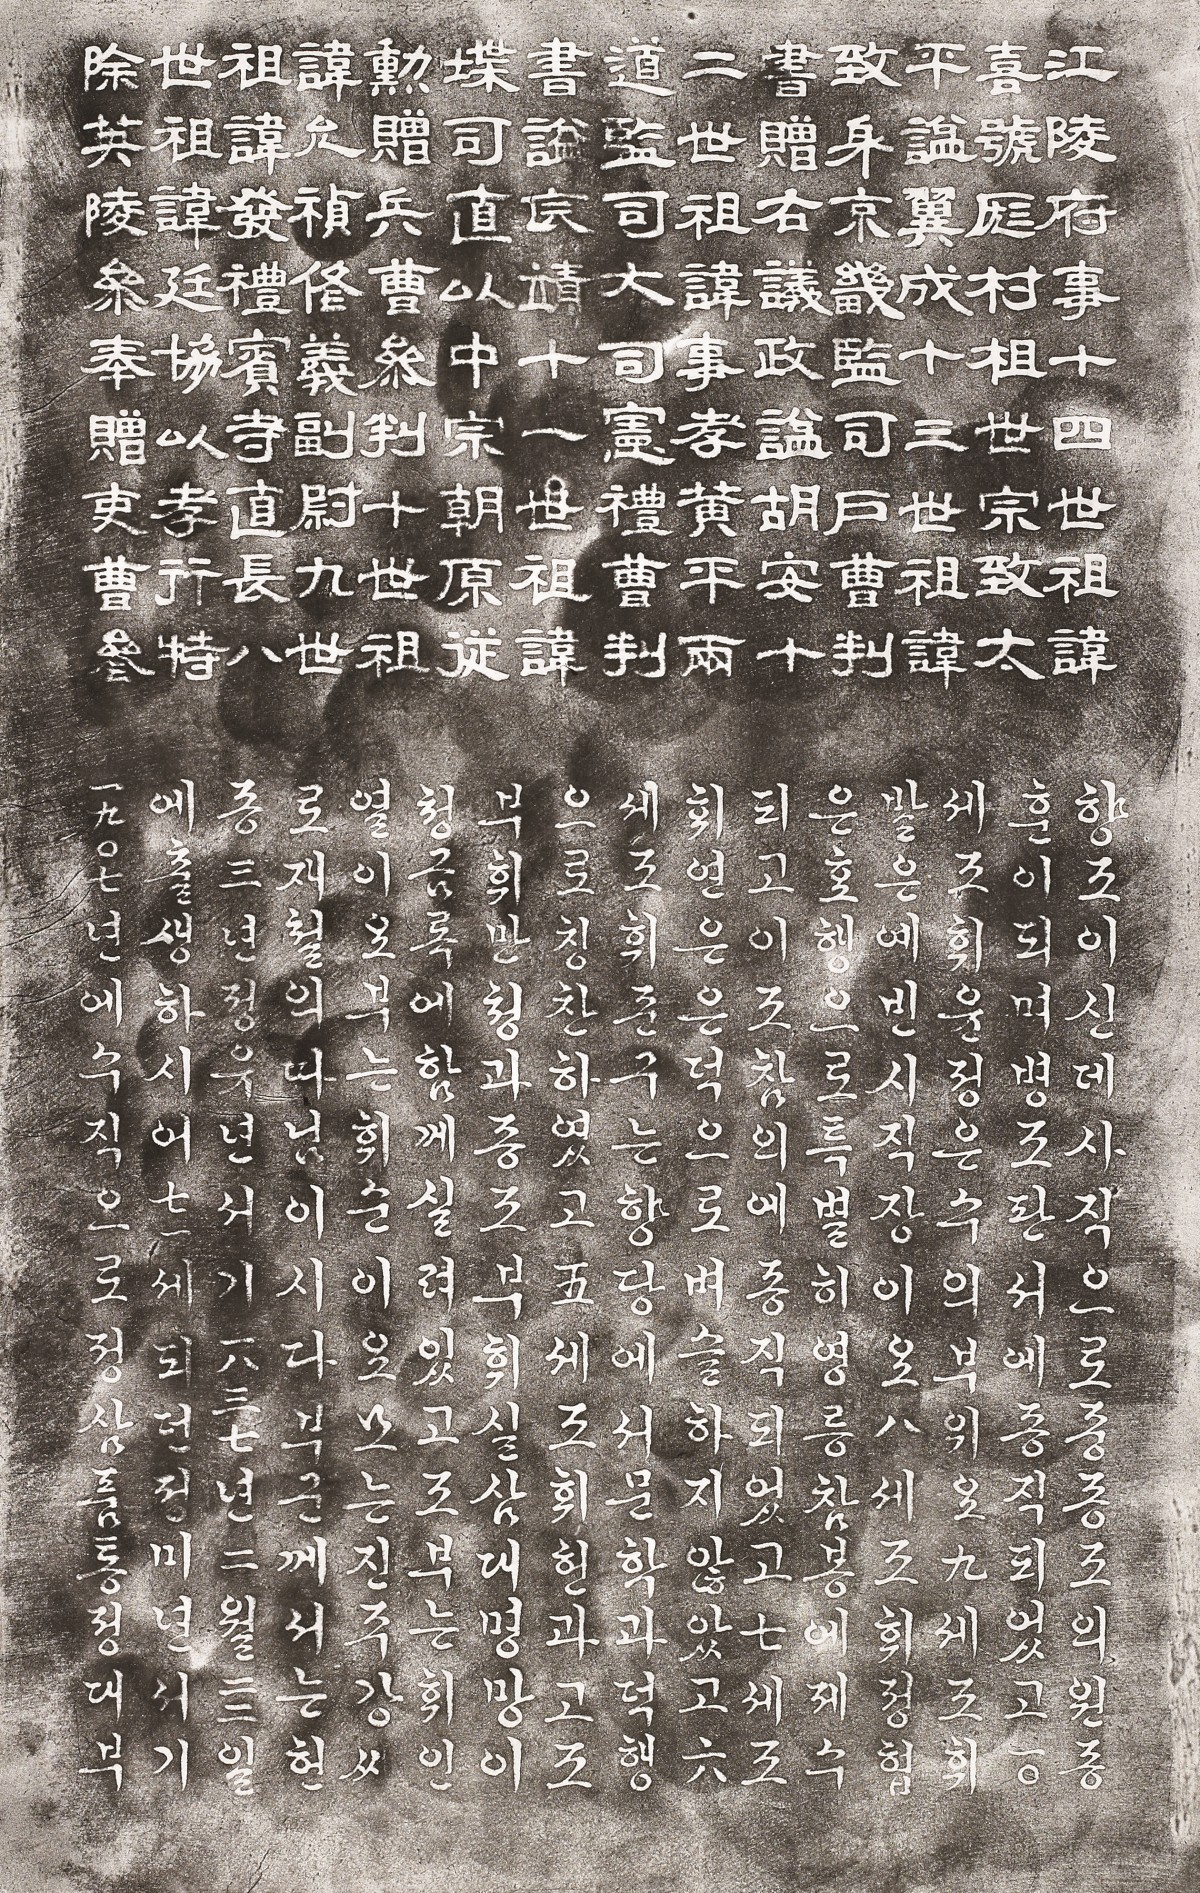 江陵府事十四世祖諱
喜號厖村祖世宗致太
平諡翼成十三世祖諱
致身京畿監司戶曹判
書贈右議政諡胡安十
二世祖諱事孝黃平兩
道監司大司憲禮曹判
書諡㝎靖十一世祖諱
堞司直以中宗朝原從
勳贈兵曹叅判十世祖
諱允禎修義副尉九世
祖諱發禮賓寺直長八
世祖諱廷協以孝行特
除英陵叅奉贈吏曹叅
향조이신데사직으로중종조의원종
훈이되며병조판서에증직되었고十
세조휘윤정은수의부위요九세조휘
발은예빈시직장이요八세조휘정협
은효행으로특별히영릉참봉에제수
되고이조참의에증직되었고七세조
휘연은은덕으로벼슬하지않았고六
세조휘준구는향당에서문학과덕행
으로칭찬하였고五세조휘헌과고조
부휘만청과증조부휘실삼대명망이
청금록에함께실려있고조부는휘인
열이요부는휘순이요모는진주강씨
로재철의따님이시다부군께서는헌
종三년정유년서기一八三七년二월二三일
에출생하시어七一세되던정미년서기
一九〇七년에수직으로정삼품통정대부